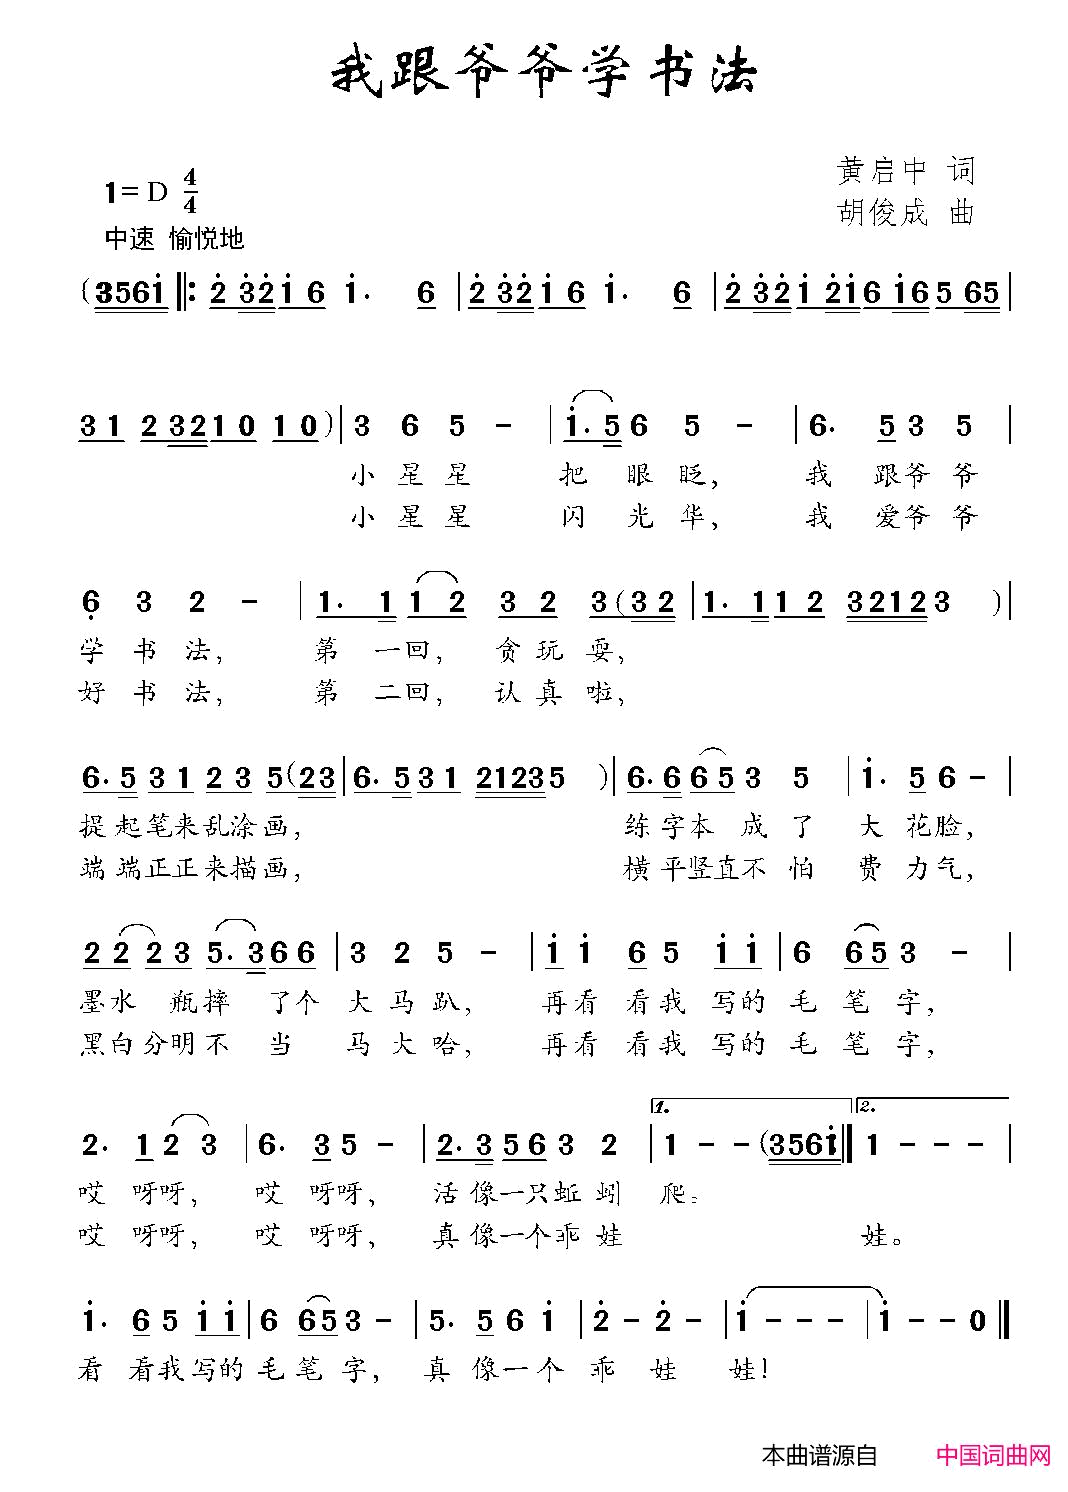 我跟爷爷学书法
黄启中 词
1= D 4/4
胡俊成 曲
中速 愉悦地
(3561̇ ‖: 2̇ 3̇2̇1̇ 6 1̇. 6 | 2̇ 3̇2̇1̇ 6 1̇. 6 | 2̇ 3̇2̇1̇ 2̇1̇6 1̇65 65 |
3 1 2 321 0 1 0 ) | 3 6 5 - | 1̇. 5 6 5 - | 6. 5 3 5 |
小 星 星 把 眼 眨， 我 跟爷 爷
小 星 星 闪 光 华， 我 爱爷 爷
6̣ 3 2 - | 1. 1 1 2 3 2 3 (3 2 | 1. 1 1 2 32123 ) |
学 书 法， 第 一回， 贪玩耍，
好 书 法， 第 二回， 认真啦，
6. 5 3 1 2 3 5 (23 | 6. 5 3 1 21235 ) | 6. 6 6 5 3 5 | 1̇. 5 6 - |
提起笔来乱涂画， 练字本 成 了 大 花脸，
端端正正来描画， 横平竖直不 怕 费 力气，
2 2 2 3 5. 3 6 6 | 3 2 5 - | 1̇ 1̇ 6 5 1̇ 1̇ | 6 6 5 3 - |
墨水 瓶摔 了个 大马趴， 再看 看我 写的 毛 笔 字，
黑白分明不 当 马大哈， 再看 看我 写的 毛 笔 字，
1. 2.
2. 1 2 3 | 6. 3 5 - | 2. 3 5 6 3 2 | 1 - - (3561̇ :‖ 1 - - - |
哎 呀呀， 哎 呀呀， 活像一只蚯 蚓 爬。
哎 呀呀， 哎 呀呀， 真像一个乖 娃 娃。
1̇. 6 5 1̇ 1̇ | 6 6 5 3 - | 5. 5 6 1̇ | 2̇ - 2̇ - | 1̇ - - - | 1̇ - - 0 ‖
看 看我写的 毛 笔 字， 真 像一个 乖 娃 娃！
本曲谱源自 中国词曲网